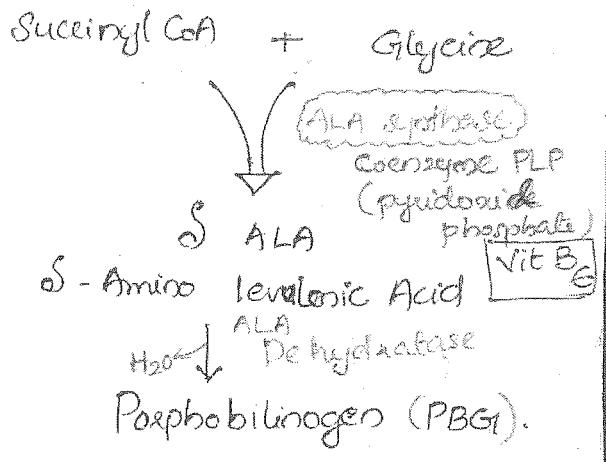 Succinyl CoA + Glycine
ALA synthase
Coenzyme PLP
(pyridoxide
phosphate)
δ ALA
Vit B6
δ-Amino levulonic Acid
ALA
H2O
Dehydratase
Porphobilinogen (PBG).